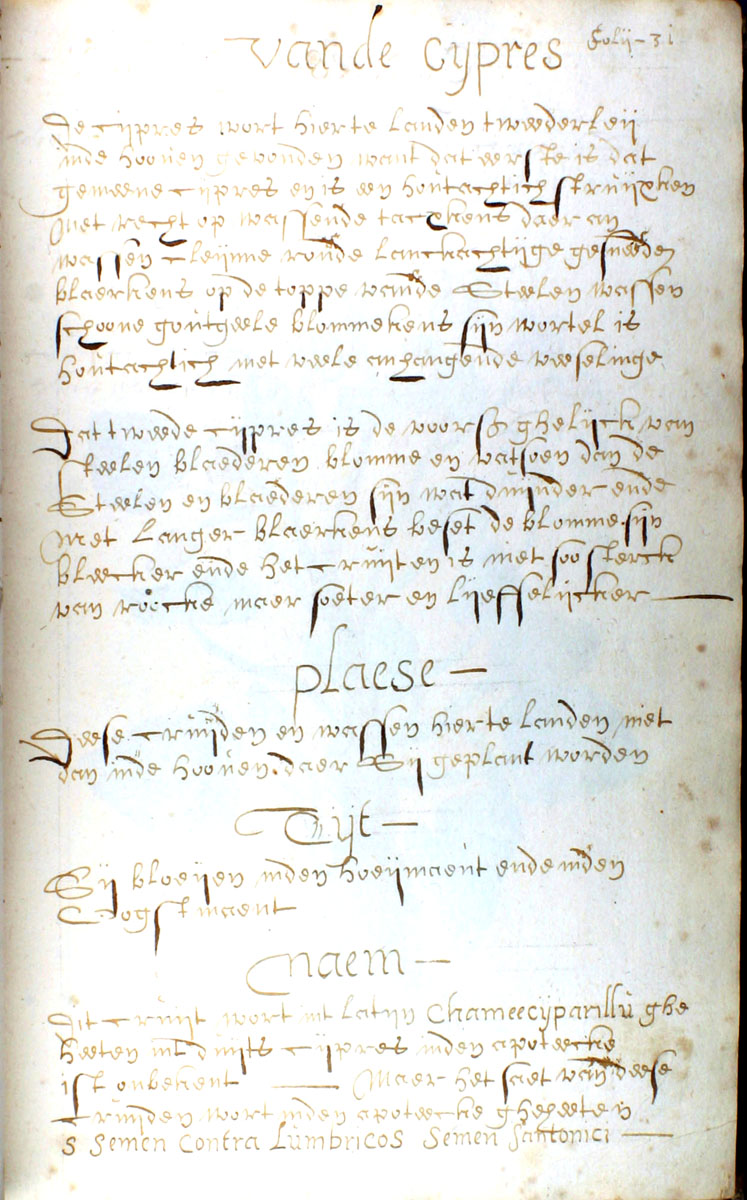 Folij - 31
Vande Cÿpres
De Cijpres wort hier te landen tweederleij
inde hooven gevonden want dat eerste is dat
gemeene Cijpres en is een houtachtich struijxken
Met recht op wassende tacxkens daer an
wassen cleijnne ronde lanckachtijge gesneeden
blaerkens op de toppe vande Steelen wassen
schoone goutgeele blommekens sijn wortel is
houtachtich met veele anhangende veeselinge
Dat tweede Cijpres is de voors ghelijck van
steelen blaederen blomme en fatsoen dan de
Steelen en blaederen sijn wat dminder ende
Met langer blaerkens beset de blomme sijn
bleecker ende het cruijt en is niet soo sterck
van roocke maer soeter en lijeffelijcker
plaese
Deese cruijden en wassen hier te landen niet
dan inde hooven daer Sij geplant worden
Tijt
Sij bloeijen inden hoeijmaent ende inden
Oogstmaent
Naem
Dit cruijt wort int latijn Chameecÿparillu ghe
heeten int duijts Cijpres inden apoteecke
ist onbekent Maer het saet van deese
Cruijden wort inden apoteecke gheheeten
s Semen Contra Lumbricos Semen Santonici